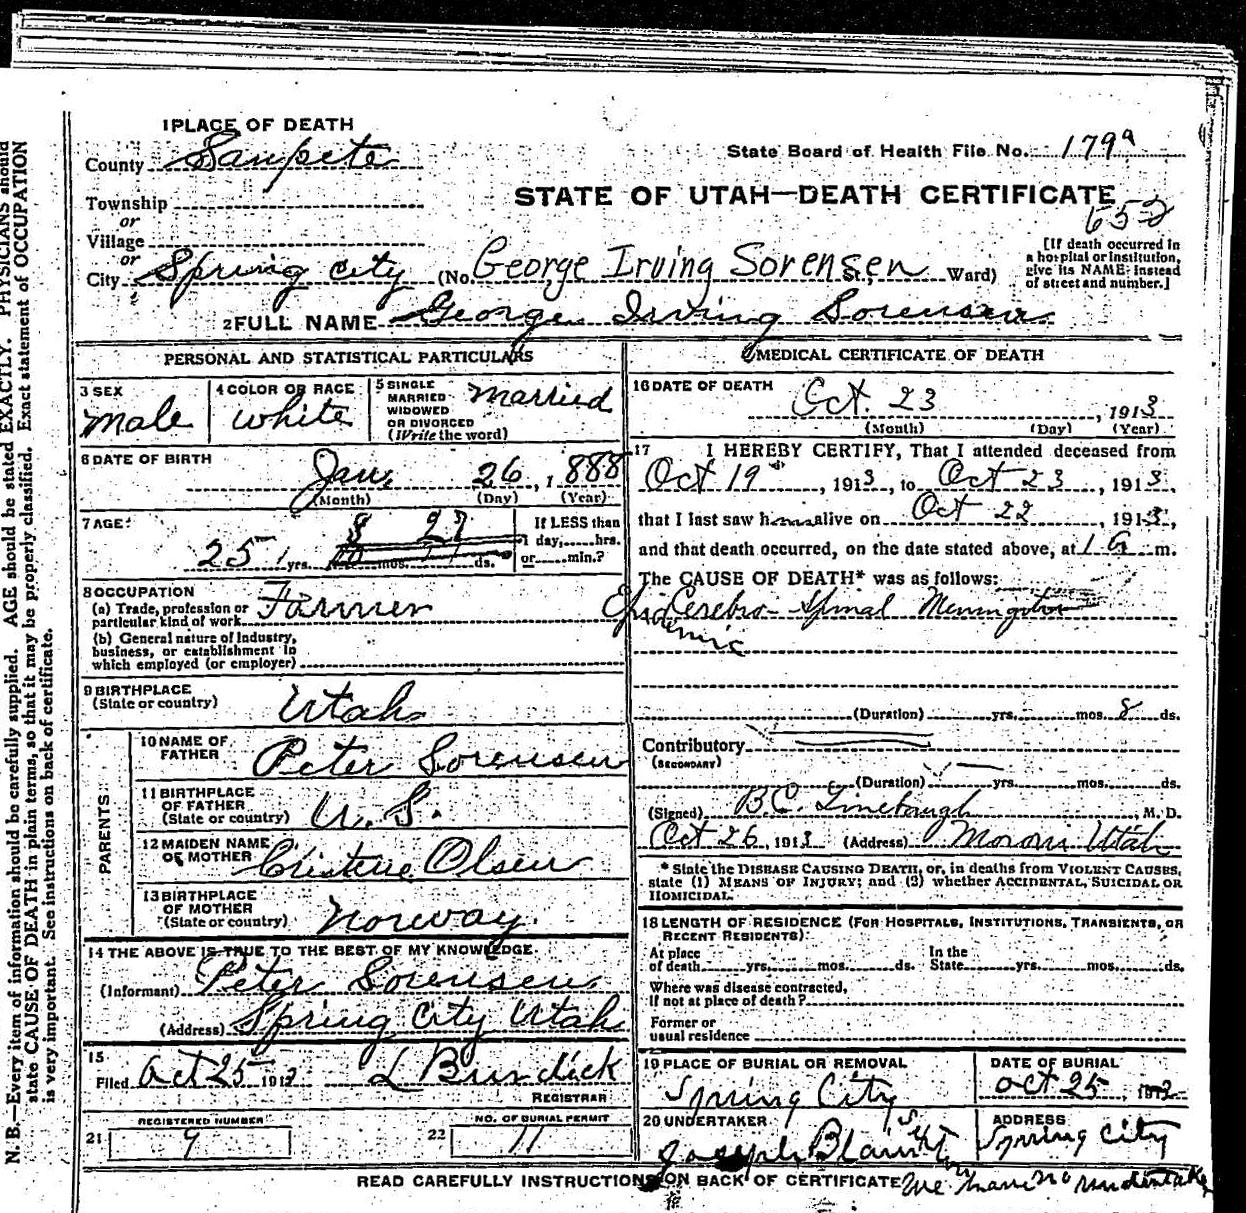 1 PLACE OF DEATH
County Sanpete
State Board of Health File No. 179a
STATE OF UTAH—DEATH CERTIFICATE
652
Township
or
Village
or
City Spring City (No. George Irving Sorensen St., Ward)
[If death occurred in
a hospital or institution,
give its NAME instead
of street and number.]
2 FULL NAME George Irving Sorensen
PERSONAL AND STATISTICAL PARTICULARS
3 SEX
Male
4 COLOR OR RACE
White
5 SINGLE
MARRIED
WIDOWED
OR DIVORCED
(Write the word)
Married
6 DATE OF BIRTH
Jan. 26, 1888
(Month) (Day) (Year)
7 AGE
8 27
25 yrs. mos. ds.
If LESS than
1 day, hrs.
or min.?
8 OCCUPATION
(a) Trade, profession or
particular kind of work Farmer
(b) General nature of Industry,
business, or establishment in
which employed (or employer)
9 BIRTHPLACE
(State or country)
Utah
PARENTS
10 NAME OF
FATHER
Peter Sorensen
11 BIRTHPLACE
OF FATHER
(State or country)
U. S.
12 MAIDEN NAME
OF MOTHER
Olsen
13 BIRTHPLACE
OF MOTHER
(State or country)
Norway.
14 THE ABOVE IS TRUE TO THE BEST OF MY KNOWLEDGE.
(Informant) Peter Sorensen
(Address) Spring City Utah
15
Filed Oct 25 191 L Burdick
REGISTRAR
REGISTERED NUMBER
21 9
NO. OF BURIAL PERMIT
22 11
MEDICAL CERTIFICATE OF DEATH
16 DATE OF DEATH
Oct. 23, 1913
(Month) (Day) (Year)
17 I HEREBY CERTIFY, That I attended deceased from
Oct 19, 1913, to Oct 23, 1913,
that I last saw him alive on Oct 22, 1913,
and that death occurred, on the date stated above, at 1 a m.
The CAUSE OF DEATH* was as follows:
Epidemic Cerebro-Spinal Meningitis
(Duration) yrs. mos. 8 ds.
Contributory
(SECONDARY)
(Duration) yrs. mos. ds.
(Signed) B.C. Linebaugh, M. D.
Oct 26, 1913 (Address) Moroni Utah
* State the DISEASE CAUSING DEATH, or, in deaths from VIOLENT CAUSES,
state (1) MEANS OF INJURY; and (2) whether ACCIDENTAL, SUICIDAL OR
HOMICIDAL.
18 LENGTH OF RESIDENCE (FOR HOSPITALS, INSTITUTIONS, TRANSIENTS, OR
RECENT RESIDENTS)
At place
of death yrs. mos. ds.
In the
State yrs. mos. ds.
Where was disease contracted,
if not at place of death?
Former or
usual residence
19 PLACE OF BURIAL OR REMOVAL
Spring City
DATE OF BURIAL
Oct 25, 191
20 UNDERTAKER
Joseph Blain
ADDRESS
Spring City
READ CAREFULLY INSTRUCTIONS ON BACK OF CERTIFICATE
We have no undertaker
N. B.—Every item of information should be carefully supplied. AGE should be stated EXACTLY. PHYSICIANS should
state CAUSE OF DEATH in plain terms, so that it may be properly classified. Exact statement of OCCUPATION
is very important. See instructions on back of certificate.